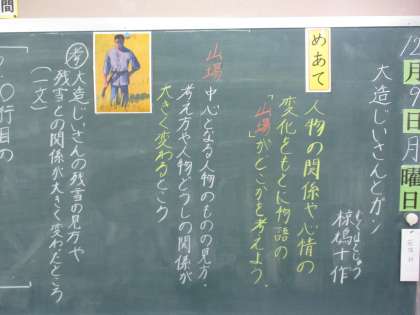 12月9日月曜日
大造じいさんとガン
むくはとじゅう
椋鳩十作
めあて
人物の関係や心情の
変化をもとに物語の
「山場」がどこかを考えよう。
山場
中心となる人物のものの見方・
考え方や人物どうしの関係が
大きく変わるところ
考
大造じいさんの残雪の見方や
残雪との関係が大きく変わったところ
(一文)
行目の
間